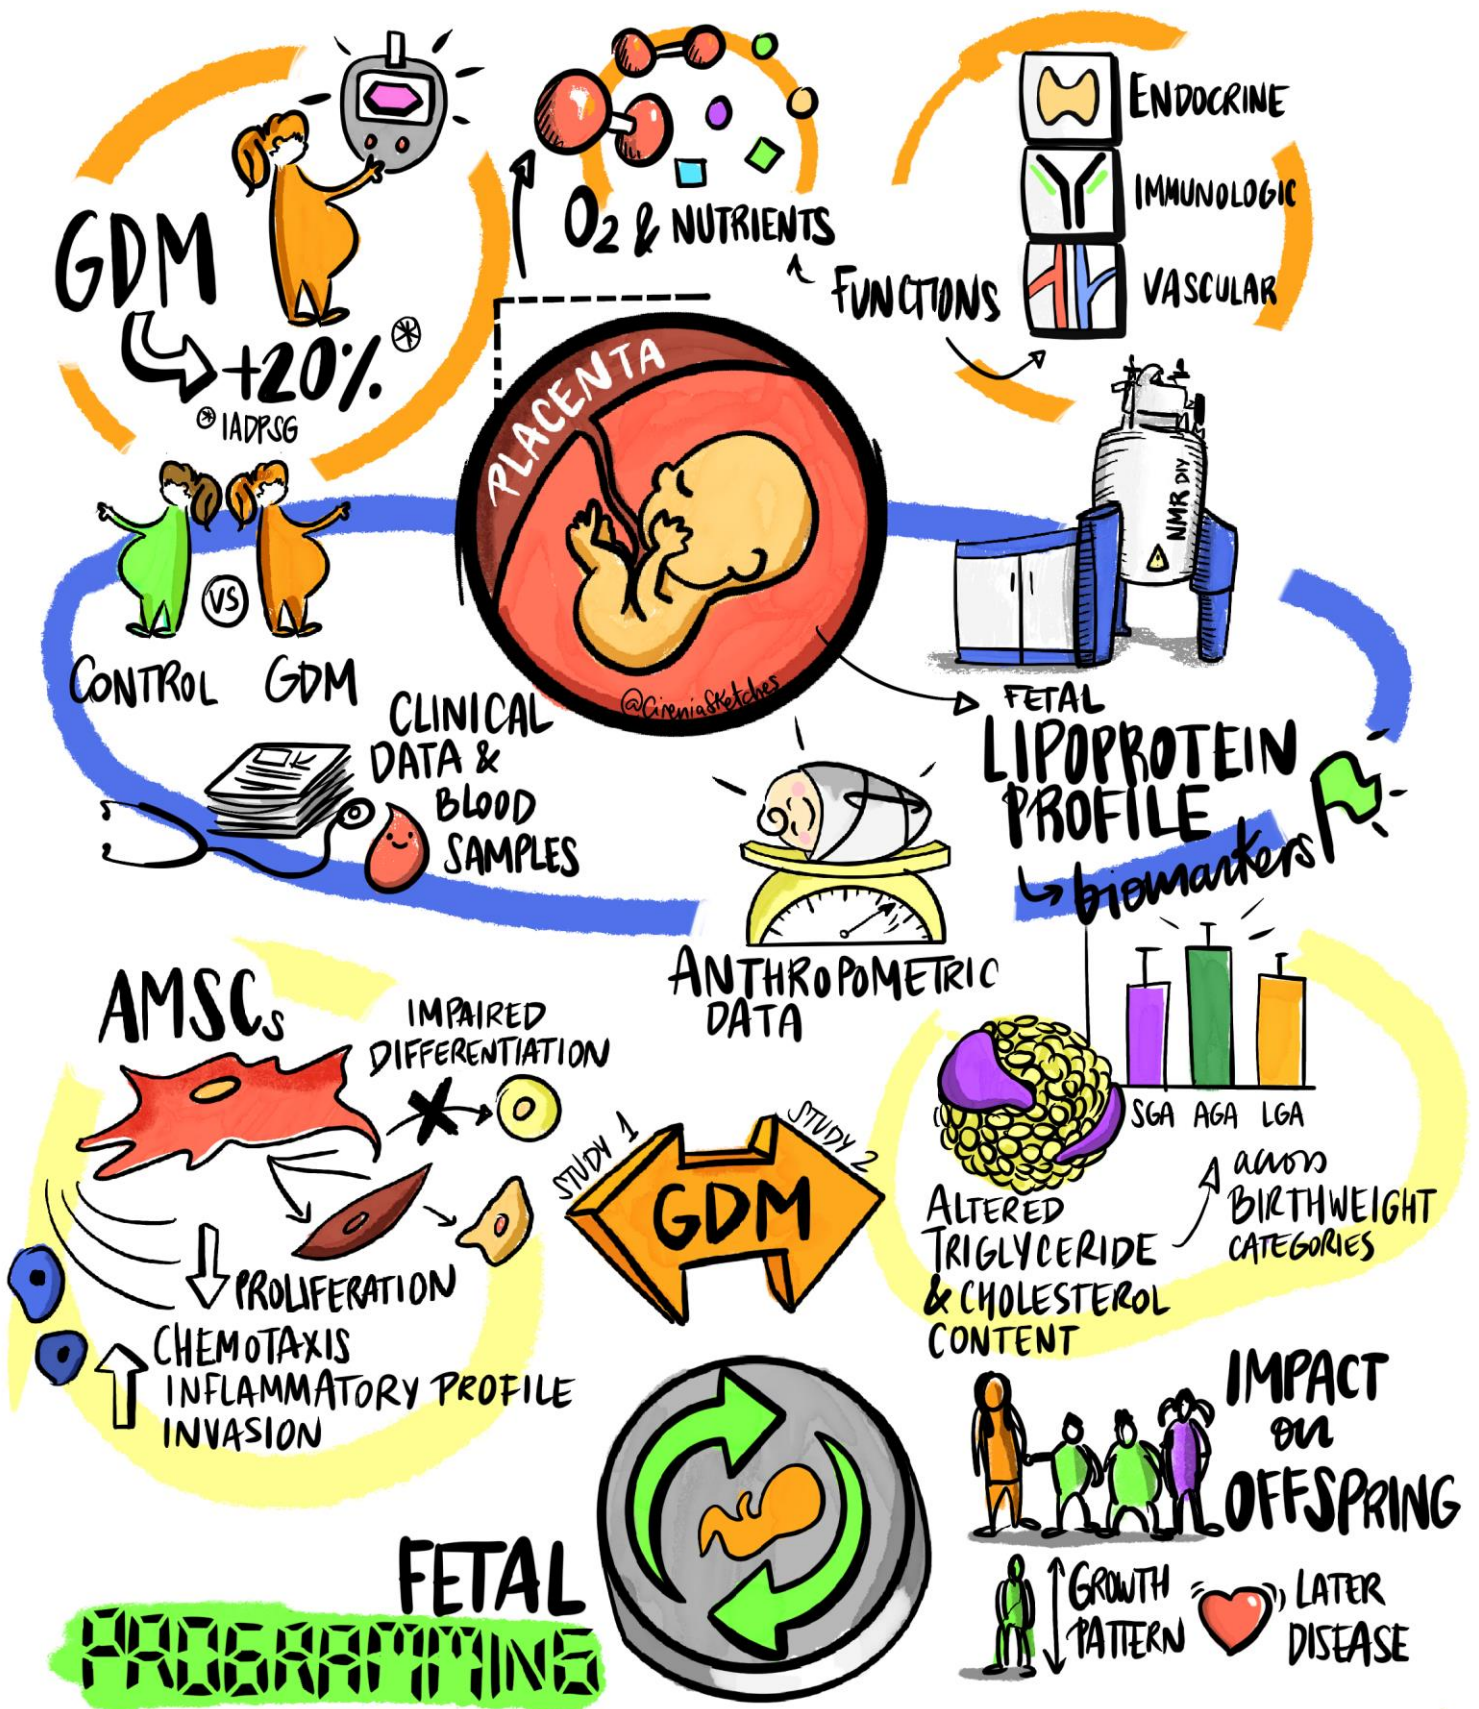 GDM
+20% *
* IADPSG
O2 & NUTRIENTS
FUNCTIONS
ENDOCRINE
IMMUNOLOGIC
VASCULAR
PLACENTA
@CireniaSketches
NMR DIY
VS
CONTROL GDM
CLINICAL
DATA &
BLOOD
SAMPLES
FETAL
LIPOPROTEIN
PROFILE
biomarkers
ANTHROPOMETRIC
DATA
AMSCs
IMPAIRED
DIFFERENTIATION
PROLIFERATION
CHEMOTAXIS
INFLAMMATORY PROFILE
INVASION
STUDY 1
STUDY 2
GDM
SGA AGA LGA
ALTERED
TRIGLYCERIDE
& CHOLESTEROL
CONTENT
across
BIRTHWEIGHT
CATEGORIES
FETAL
PROGRAMMING
IMPACT
on
OFFSPRING
GROWTH
PATTERN
LATER
DISEASE